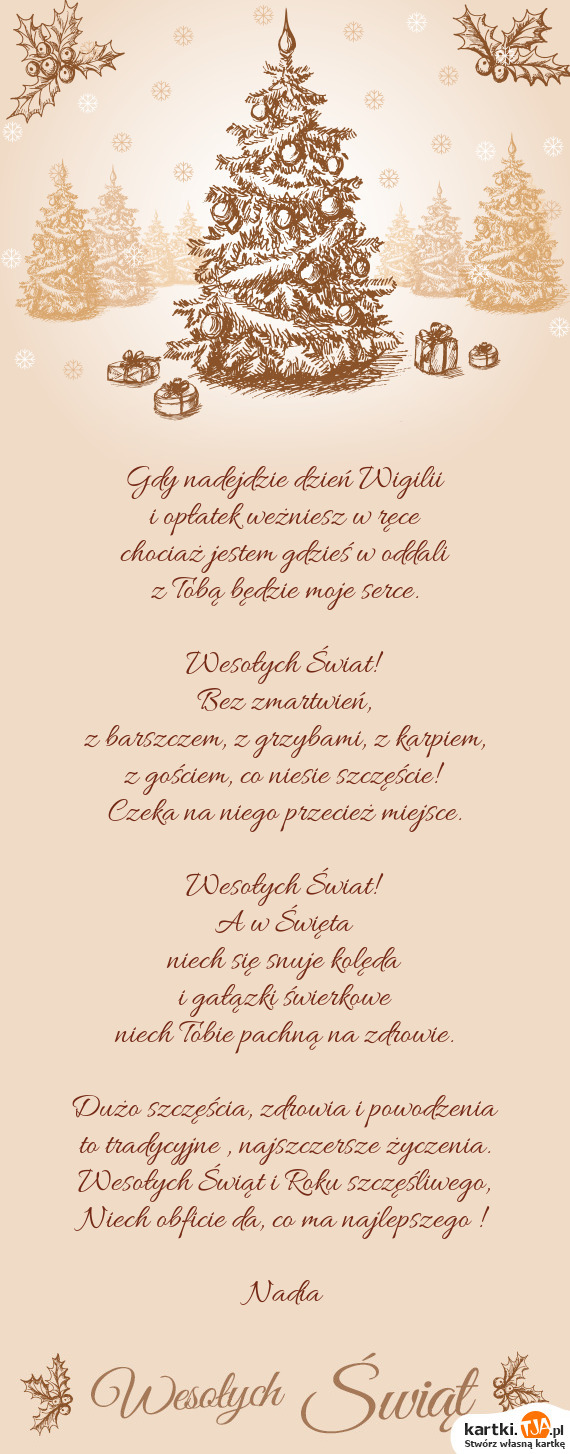 Gdy nadejdzie dzień Wigilii
i opłatek weżniesz w ręce
chociaż jestem gdzieś w oddali
z Tobą będzie moje serce.

Wesołych Świat!
Bez zmartwień,
z barszczem, z grzybami, z karpiem,
z gościem, co niesie szczęście!
Czeka na niego przecież miejsce.

Wesołych Świat!
A w Święta
niech się snuje kolęda
i gałązki świerkowe
niech Tobie pachną na zdrowie.

Dużo szczęścia, zdrowia i powodzenia
to tradycyjne , najszczersze życzenia.
Wesołych Świąt i Roku szczęśliwego,
Niech obficie da, co ma najlepszego !

Nadia

Wesołych Świąt
kartki.TJA.pl
Stwórz własną kartkę